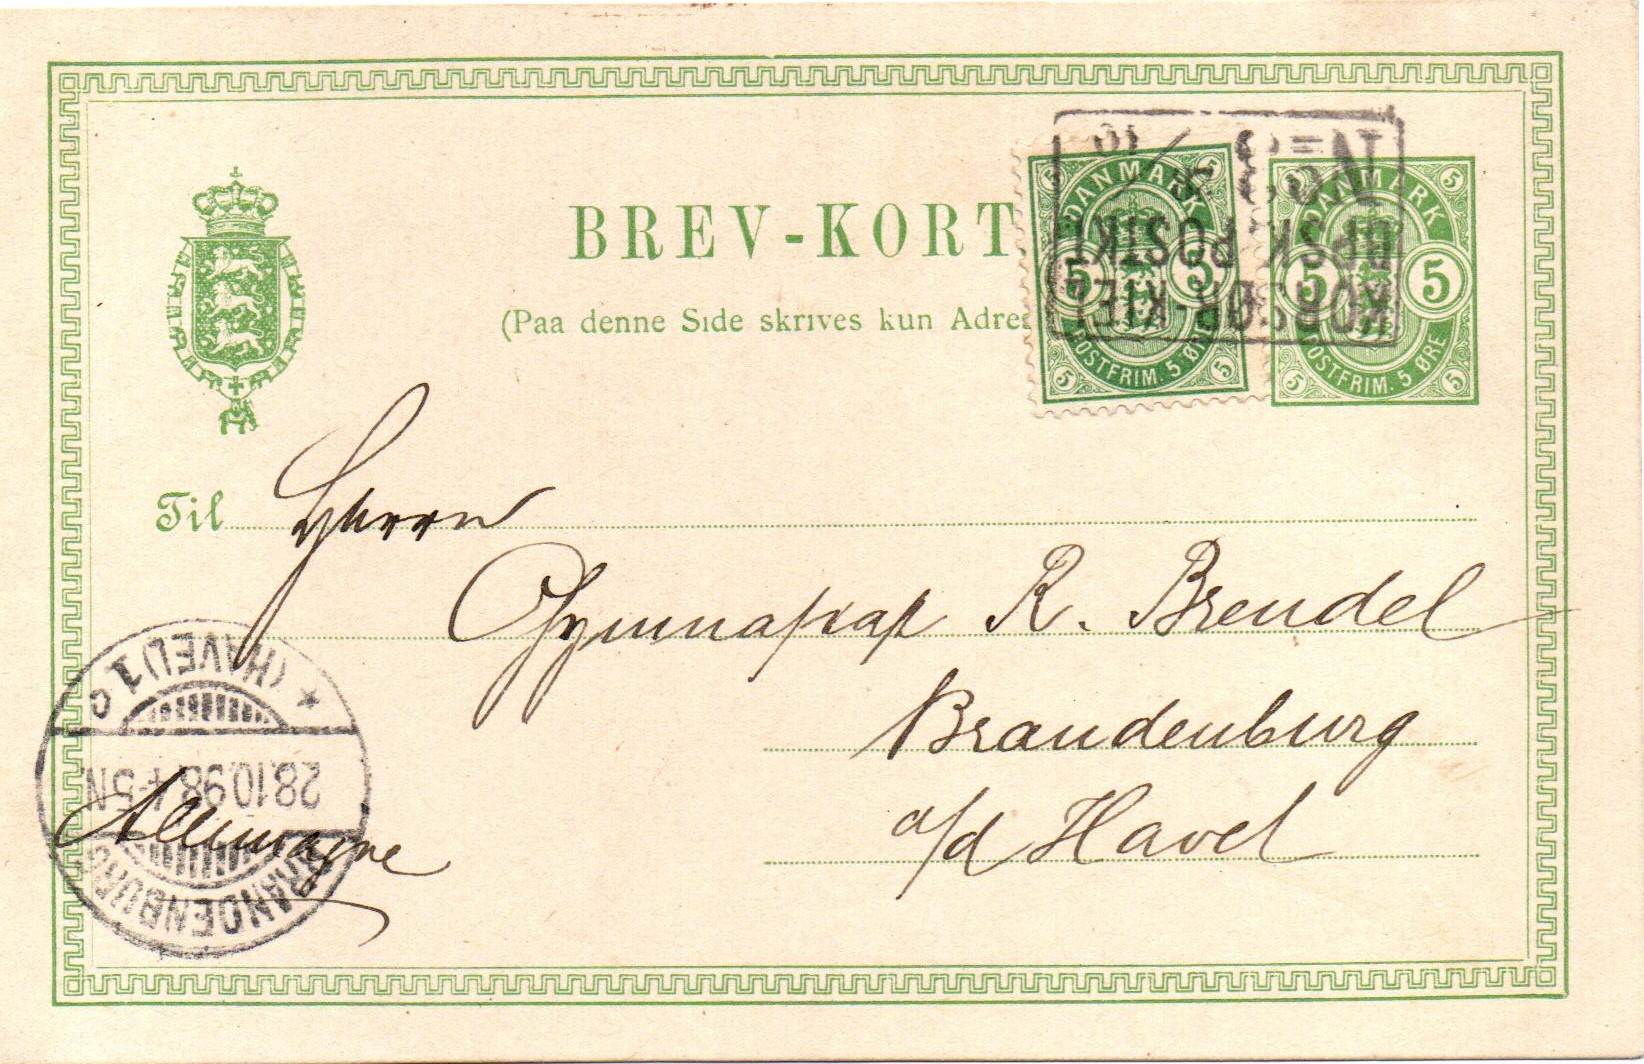 BREV-KORT
(Paa denne Side skrives kun Adre
DANMARK
5 5
POSTFRIM. 5 ØRE
DANMARK
5 5
POSTFRIM. 5 ØRE
KORSØR-KIEL
DPSK:POSTKT
Til Herrn
R. Brendel
Brandenburg
a/d Havel
Allemagne
BRANDENBURG
28.10.98. 4-5N
* (HAVEL) 1 c